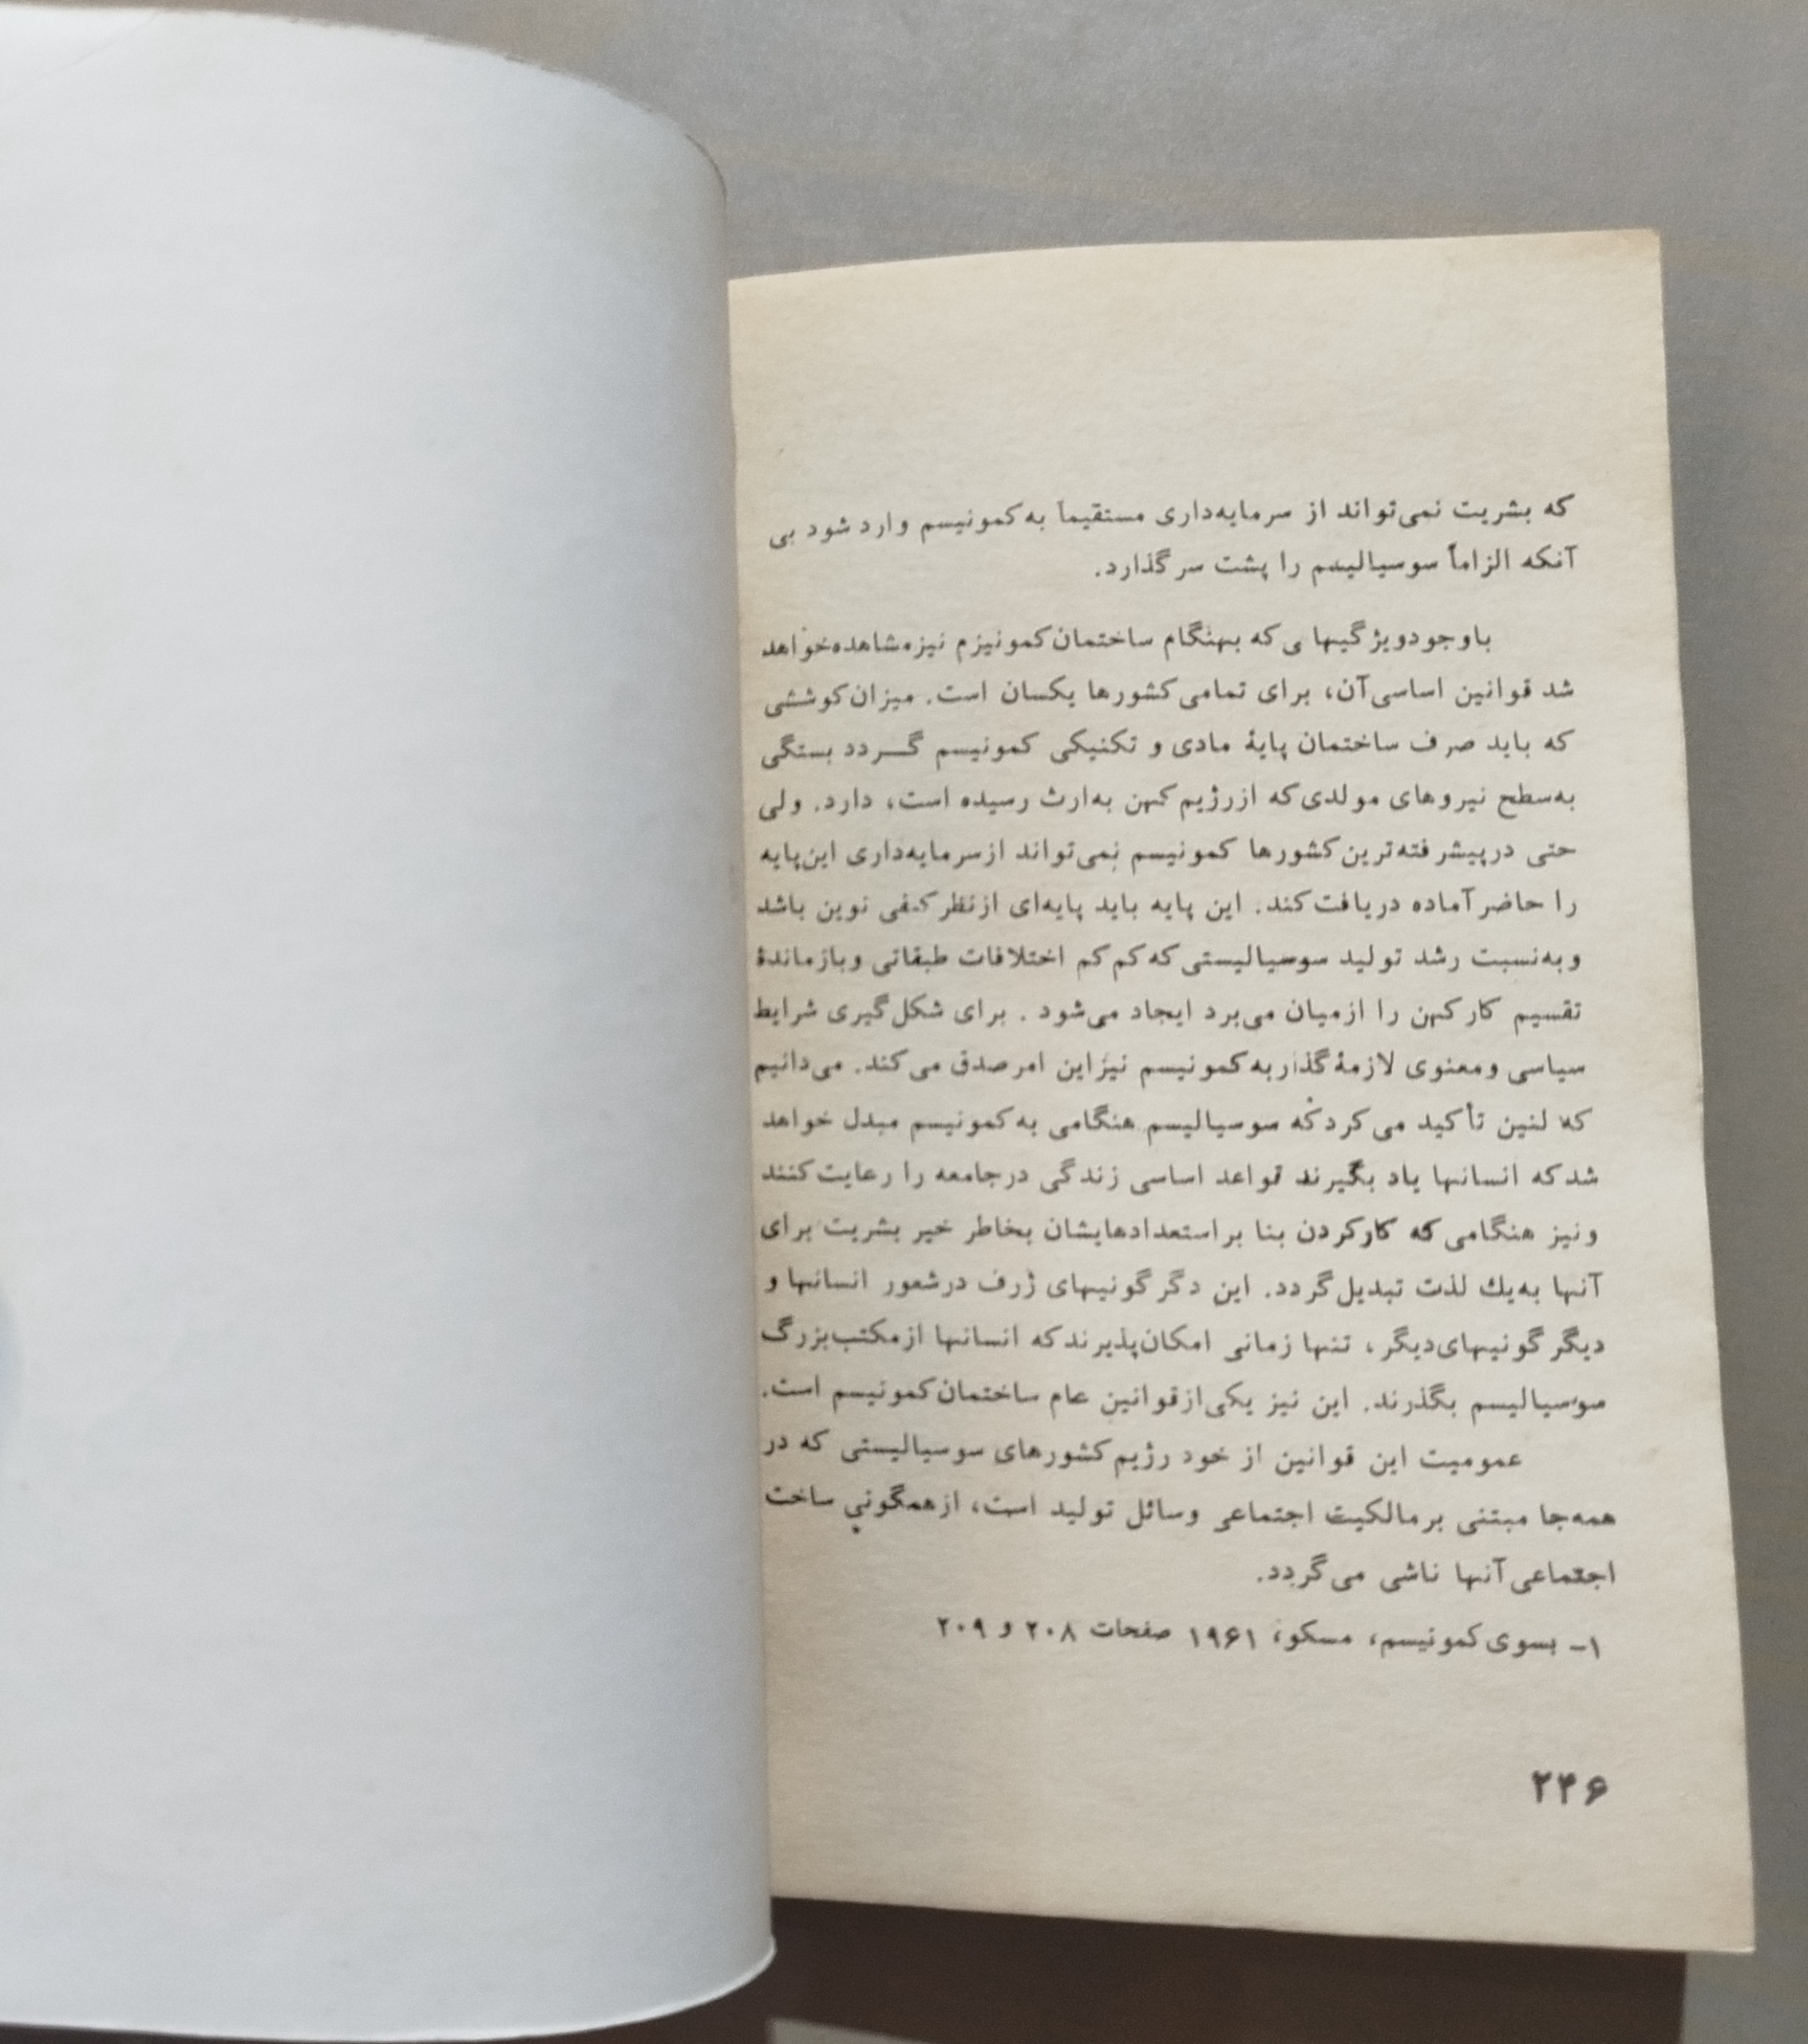 که بشریت نمی‌تواند از سرمایه‌داری مستقیماً به کمونیسم وارد شود بی
آنکه الزاماً سوسیالیسم را پشت سر گذارد.
باوجود ویژگیهایی که بهنگام ساختمان کمونیزم نیز مشاهده خواهد
شد قوانین اساسی آن، برای تمامی کشورها یکسان است. میزان کوششی
که باید صرف ساختمان پایهٔ مادی و تکنیکی کمونیسم گردد بستگی
به‌سطح نیروهای مولدی که از رژیم کهن به‌ارث رسیده است، دارد. ولی
حتی در پیشرفته‌ترین کشورها کمونیسم نمی‌تواند از سرمایه‌داری این پایه
را حاضر آماده دریافت کند. این پایه باید پایه‌ای از نظر کیفی نوین باشد
و به‌نسبت رشد تولید سوسیالیستی که کم کم اختلافات طبقاتی و بازماندهٔ
تقسیم کار کهن را از میان می‌برد ایجاد می‌شود . برای شکل گیری شرایط
سیاسی و معنوی لازمهٔ گذار به کمونیسم نیز این امر صدق می‌کند. می‌دانیم
که لنین تأکید می‌کرد که سوسیالیسم هنگامی به کمونیسم مبدل خواهد
شد که انسانها یاد بگیرند قواعد اساسی زندگی در جامعه را رعایت کنند
و نیز هنگامی که کار کردن بنا بر استعدادهایشان بخاطر خیر بشریت برای
آنها به‌یك لذت تبدیل گردد. این دگرگونیهای ژرف در شعور انسانها و
دیگرگونیهای دیگر، تنها زمانی امکان‌پذیرند که انسانها از مکتب بزرگ
سوسیالیسم بگذرند. این نیز یکی از قوانین عام ساختمان کمونیسم است.
عمومیت این قوانین از خود رژیم کشورهای سوسیالیستی که در
همه‌جا مبتنی بر مالکیت اجتماعی وسائل تولید است، از همگونی ساخت
اجتماعی آنها ناشی می‌گردد.
۱- بسوی کمونیسم، مسکو، ۱۹۶۱ صفحات ۲۰۸ و ۲۰۹
۲۴۶